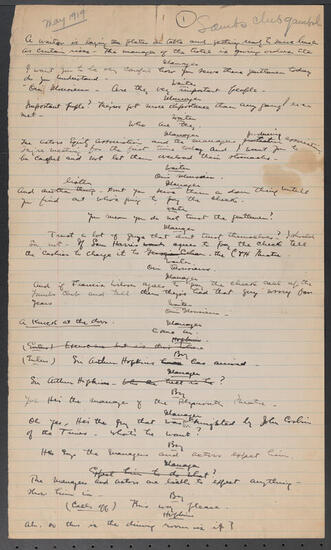 May 1919
1
Lambs club gambol
A waiter is laying the plates on table and getting ready to serve lunch
as curtain rises. The manager of the hotel is giving orders. The
Manager
I want you to be very careful how you serve these gentlemen today
do you understand.
Waiter
Oui Monsieur. Are they very important people.
Manager
Important people? They're got more importance than any gang I ever
met.
Waiter
Who are they
Manager
The actors Equity association and the managers protective association
Producing
are meeting for the first time today and I want you to
be careful and not let them overload their stomachs.
Waiter
Oui Monsieur.
Manager
And another thing. Don't you serve them a damn thing until
you find out who's going to pay the check.
Waiter
You mean you do not trust the gentlemen?
Manager
Trust a lot of guys that don't trust themselves? I should
say not. If Sam Harris agrees to pay the check tell
the cashier to charge it to Cohan. the C & H Theatre.
Waiter
Oui Monsieur.
Manager
And if Francis Wilson agrees to pay the check call up the
Lambs Club and tell them they've had that guy wrong for
years
Waiter
Oui Monsieur.
A knock at the door.
Manager
Come in.
(Enter)
Boy
(Enters) Sir Arthur Hopkins has arrived.
Manager
Sir Arthur Hopkins.
Boy
Yes He's the manager of the Plymouth Theatre.
Manager
Oh yes, He's the guy that was by John Corbin
of the Times. What's he want?
Boy
He says the managers and actors expect him.
Manager
Expect him to do what?
The managers and actors are liable to expect anything.
Show him in.
Boy
(Calls off) This way please.
Hopkins
Ah, so this is the dining room is it?